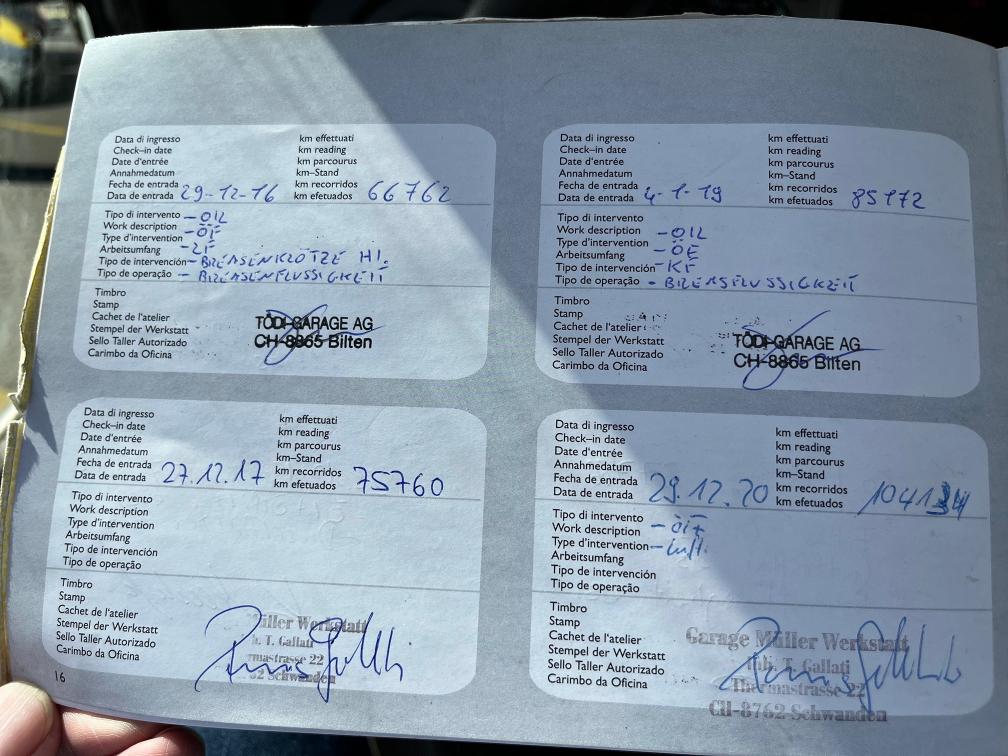 Data di ingresso
Check–in date
Date d'entrée
Annahmedatum
Fecha de entrada
Data de entrada 29-12-16
km effettuati
km reading
km parcourus
km–Stand
km recorridos
km efetuados 66762
Tipo di intervento - OIL
Work description - ÖF
Type d'intervention - LF
Arbeitsumfang
Tipo de intervención - BREMSENKLÖTZE HI.
Tipo de operação - BREMSENFLÜSSIGKEIT
Timbro
Stamp
Cachet de l'atelier
Stempel der Werkstatt
Sello Taller Autorizado
Carimbo da Oficina
TÖDI-GARAGE AG
CH-8865 Bilten
Data di ingresso
Check–in date
Date d'entrée
Annahmedatum
Fecha de entrada
Data de entrada 4-1-19
km effettuati
km reading
km parcourus
km–Stand
km recorridos
km efetuados 85172
Tipo di intervento
Work description - OIL
Type d'intervention - ÖF
Arbeitsumfang
Tipo de intervención - KF
Tipo de operação - BREMSFLÜSSIGKEIT
Timbro
Stamp
Cachet de l'atelier
Stempel der Werkstatt
Sello Taller Autorizado
Carimbo da Oficina
TÖDI-GARAGE AG
CH-8865 Bilten
Data di ingresso
Check–in date
Date d'entrée
Annahmedatum
Fecha de entrada
Data de entrada 27.12.17
km effettuati
km reading
km parcourus
km–Stand
km recorridos
km efetuados 75760
Tipo di intervento
Work description
Type d'intervention
Arbeitsumfang
Tipo de intervención
Tipo de operação
Timbro
Stamp
Cachet de l'atelier
Stempel der Werkstatt
Sello Taller Autorizado
Carimbo da Oficina
üller Werkstatt
h. T. Gallati
rmastrasse 22
62 Schwanden
Data di ingresso
Check–in date
Date d'entrée
Annahmedatum
Fecha de entrada
Data de entrada 29.12.20
km effettuati
km reading
km parcourus
km–Stand
km recorridos
km efetuados
Tipo di intervento
Work description - ölf
Type d'intervention - luft.
Arbeitsumfang
Tipo de intervención
Tipo de operação
Timbro
Stamp
Cachet de l'atelier
Stempel der Werkstatt
Sello Taller Autorizado
Carimbo da Oficina
Garage Müller Werkstatt
Inh. T. Gallati
Thermastrasse 22
CH-8762 Schwanden
16